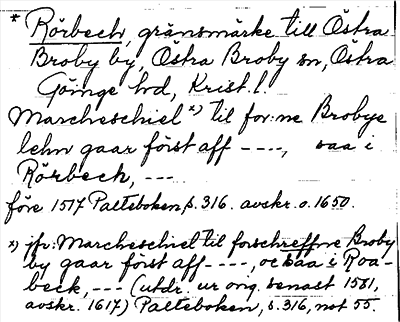 * Rörbech, gränsmärke till Östra
Broby by, Östra Broby sn, Östra
Göinge hd, Krist. l.
Marcheschiel x) til for:ne Brobye
lehn gaar först aff ----, saa i
Rörbech, ---
före 1517 Palteboken, s. 316. avskr. o. 1650.
x) jfr: Marcheschiel til forschreffne Broby
by gaar först aff ----, oc saa i Roa-
beck, --- (utdr. ur orig. senast 1581,
avskr. 1617) Palteboken, s. 316, not 55.